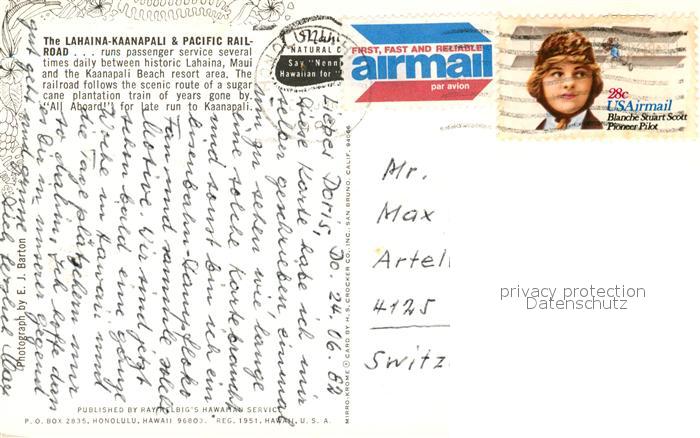 The LAHAINA-KAANAPALI & PACIFIC RAIL-
ROAD . . . runs passenger service several
times daily between historic Lahaina, Maui
and the Kaanapali Beach resort area. The
railroad follows the scenic route of a sugar
cane plantation train of years gone by.
"All Aboard!") for late run to Kaanapali.
(Photograph by E. J. Barton
NATURAL
Say "Nenn
Hawaiian for "
FIRST, FAST AND RELIABLE
airmail
par avion
28c
USAirmail
Blanche Stuart Scott
Pioneer Pilot
Lieber Doris, Do. 24.06.82
Diese Karte habe ich mir
selber geschrieben, einmal
um zu sehen wie lange
eine solche Karte braucht
und sonst bin ich ein
Eisenbahn-Dampfloko
Fan und sammle solche
Motive. Wir sind jetzt
schon bald eine ganze
Woche in Hawaii und
die Tage plätschern nur
so dahin. Ich hoffe dass
in unserer Gegend
gut
Mr.
Max
Artell
4125
Switz
privacy protection
Datenschutz
MIRRO-KROME ® CARD BY H. S. CROCKER CO., INC., SAN BRUNO, CALIF. 94066
PUBLISHED BY RAY HELBIG'S HAWAIIAN SERVICE
P. O. BOX 2835, HONOLULU, HAWAII 96803. REG. 1951, HAWAII, U. S. A.